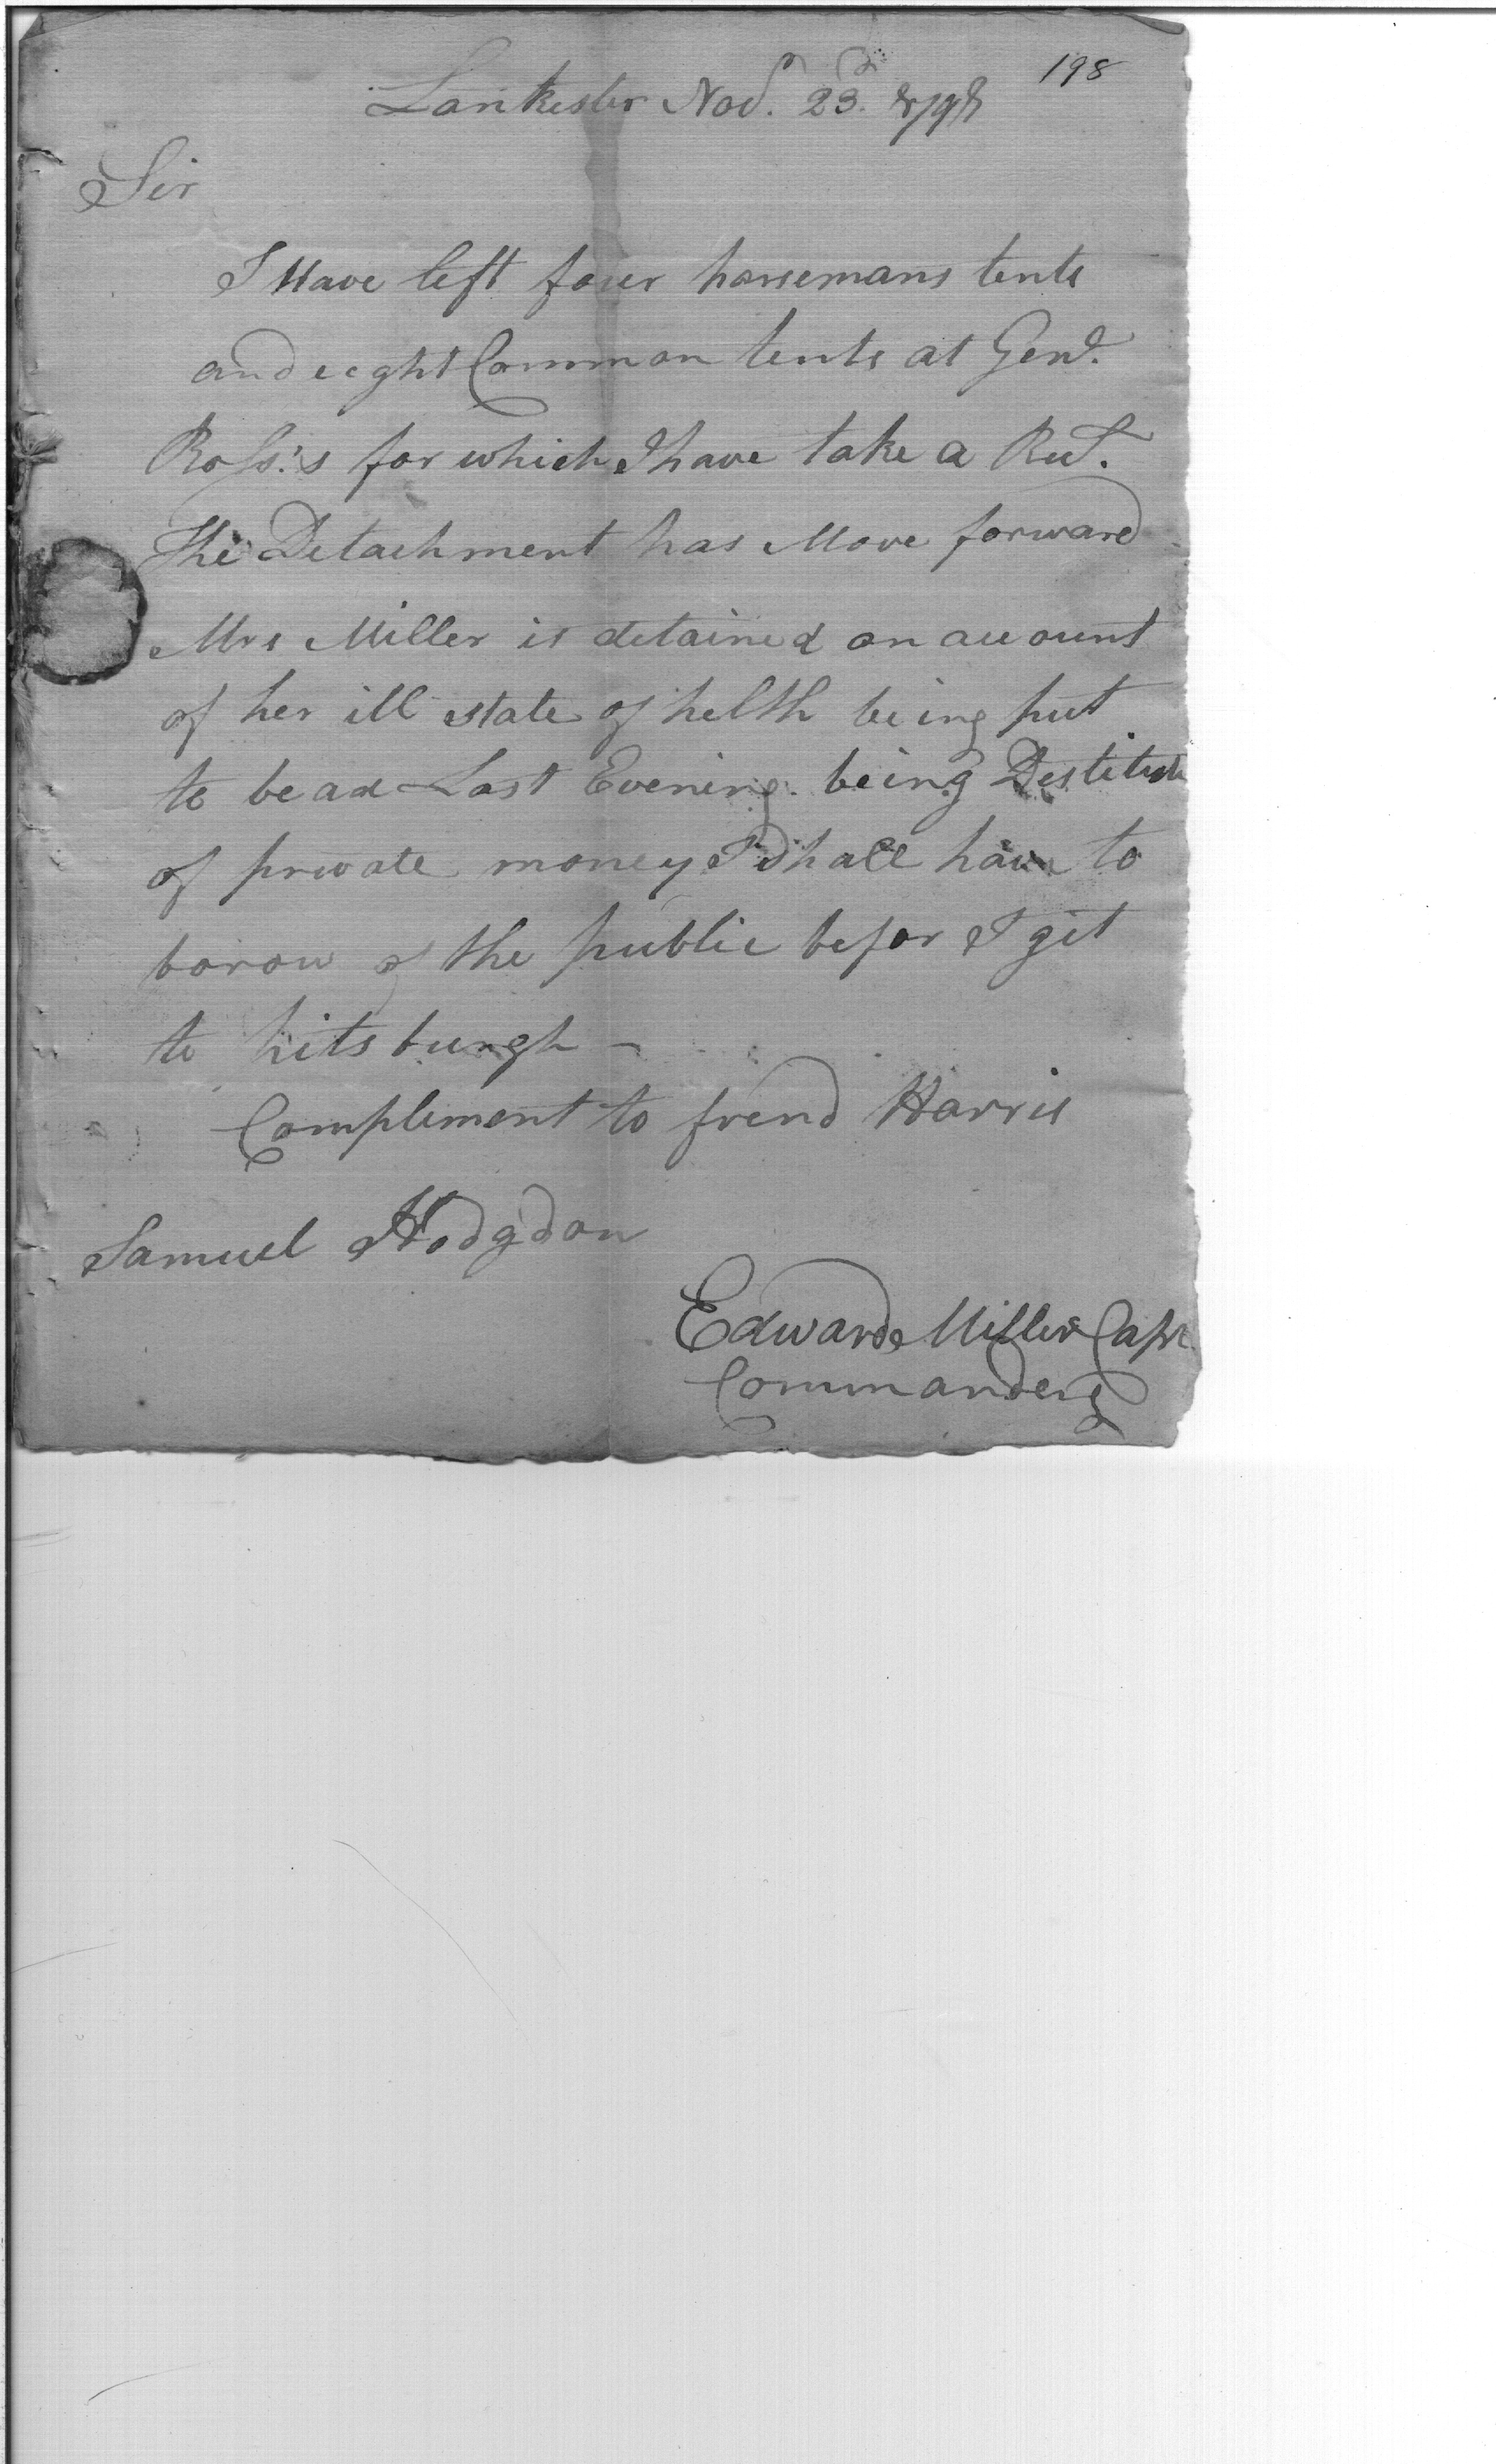 198
Lankester Nov. 23d. 1798
Sir
I Have left fouer horsemans tents
and eeght Common tents at Genl.
Ross.'s for which I have take a Rect.
The Detachment has Move forward
Mrs Miller is detained on account
of her ill state of helth being put
to bead Last Evening. being Destitute
of private money I shall have to
borow of the public befor I git
to pitsburgh -
Compliment to frend Harris
Samuel Hodgdon
Edward Miller Capt.
Commandeng